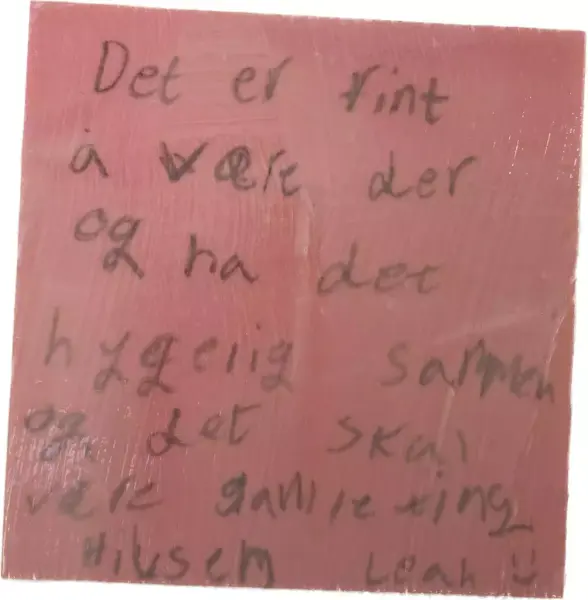 Det er fint
å være der
og ha det
hyggelig sammen
og det skal
være gamle ting
Hilsen Leah